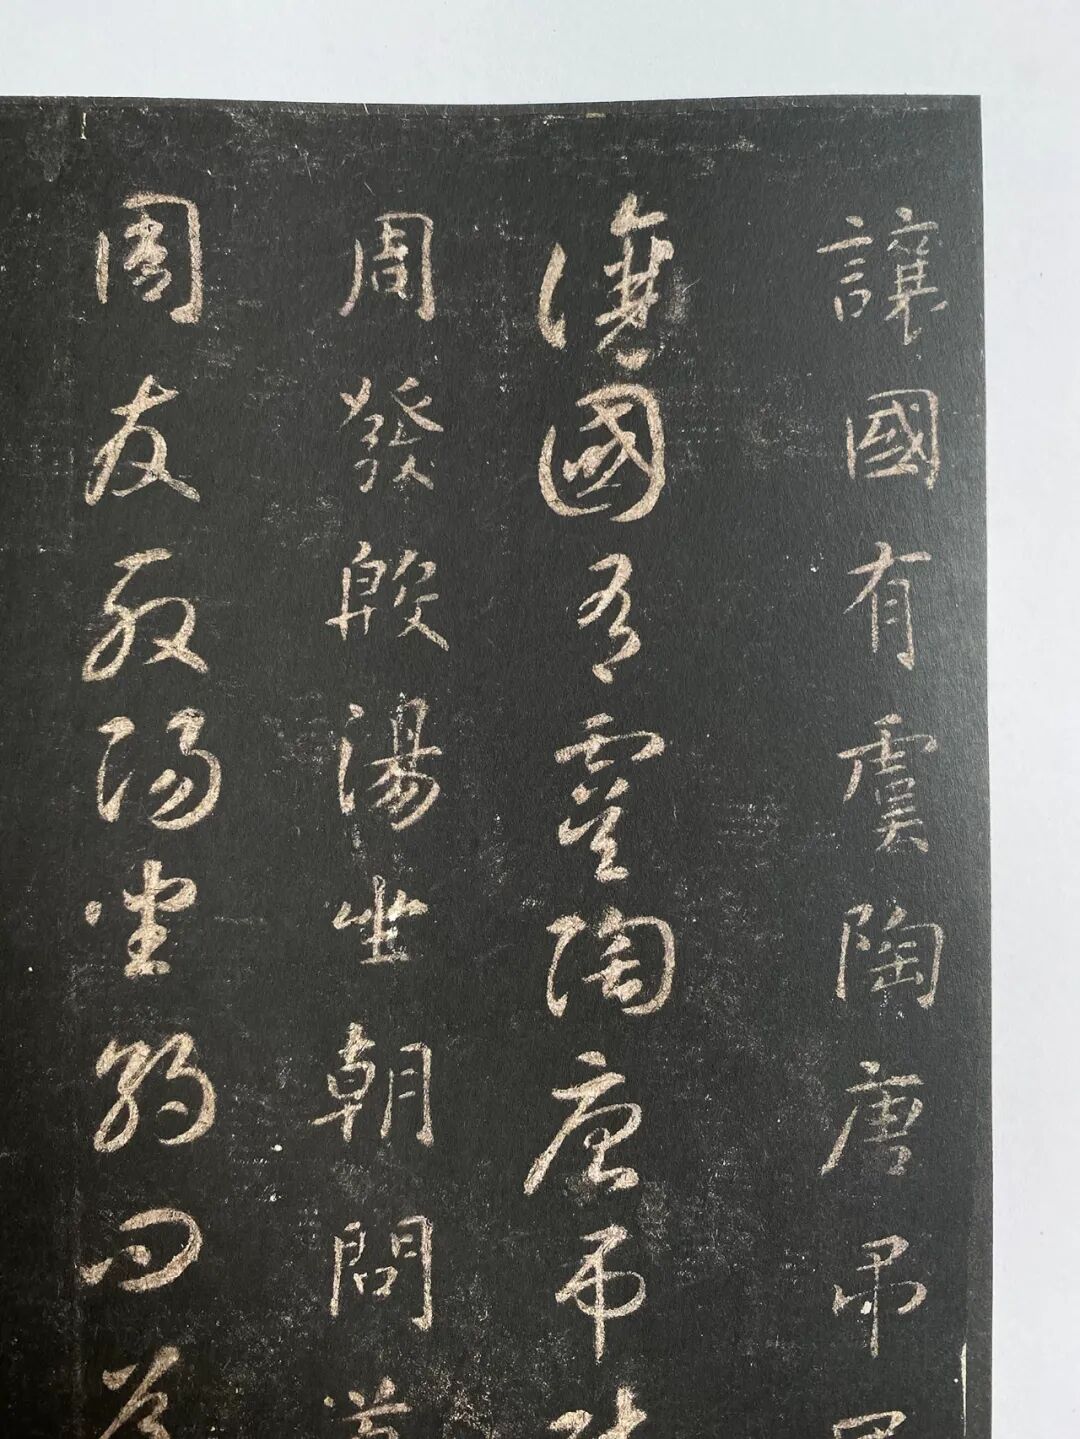 讓國有虞陶唐弔民
讓國有虞陶唐弔
周發殷湯坐朝問道
周發殷湯坐朝問道